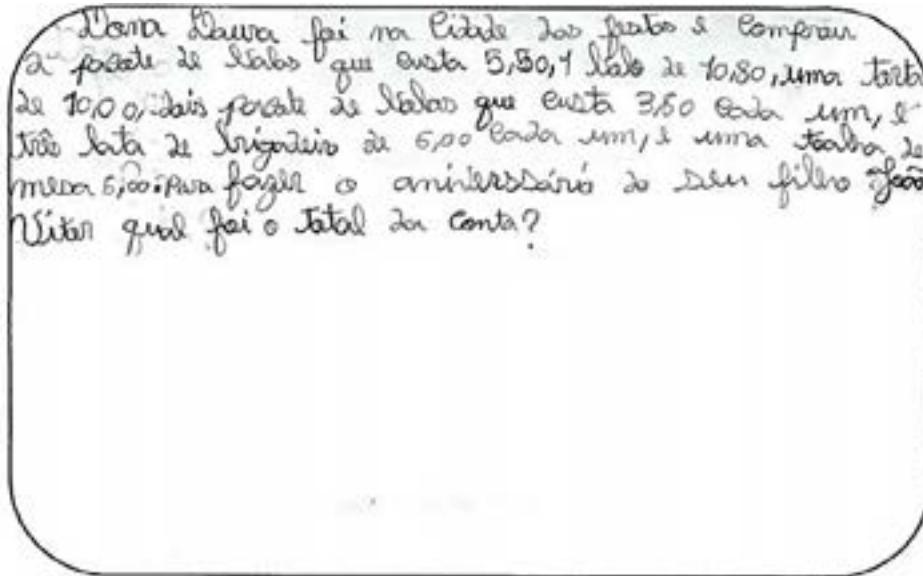 Dona Laura foi na Cidade das festas e Comprou
2 pacote de balas que custa 5,50, 1 bolo de 10,80, uma torta
de 10,00, dois pacote de balas que custa 3,50 cada um, e
três lata de brigadeiro de 6,00 cada um, e uma toalha de
mesa 5,00. Para fazer o aniverssário do seu filho João
Vitor qual foi o total da conta?